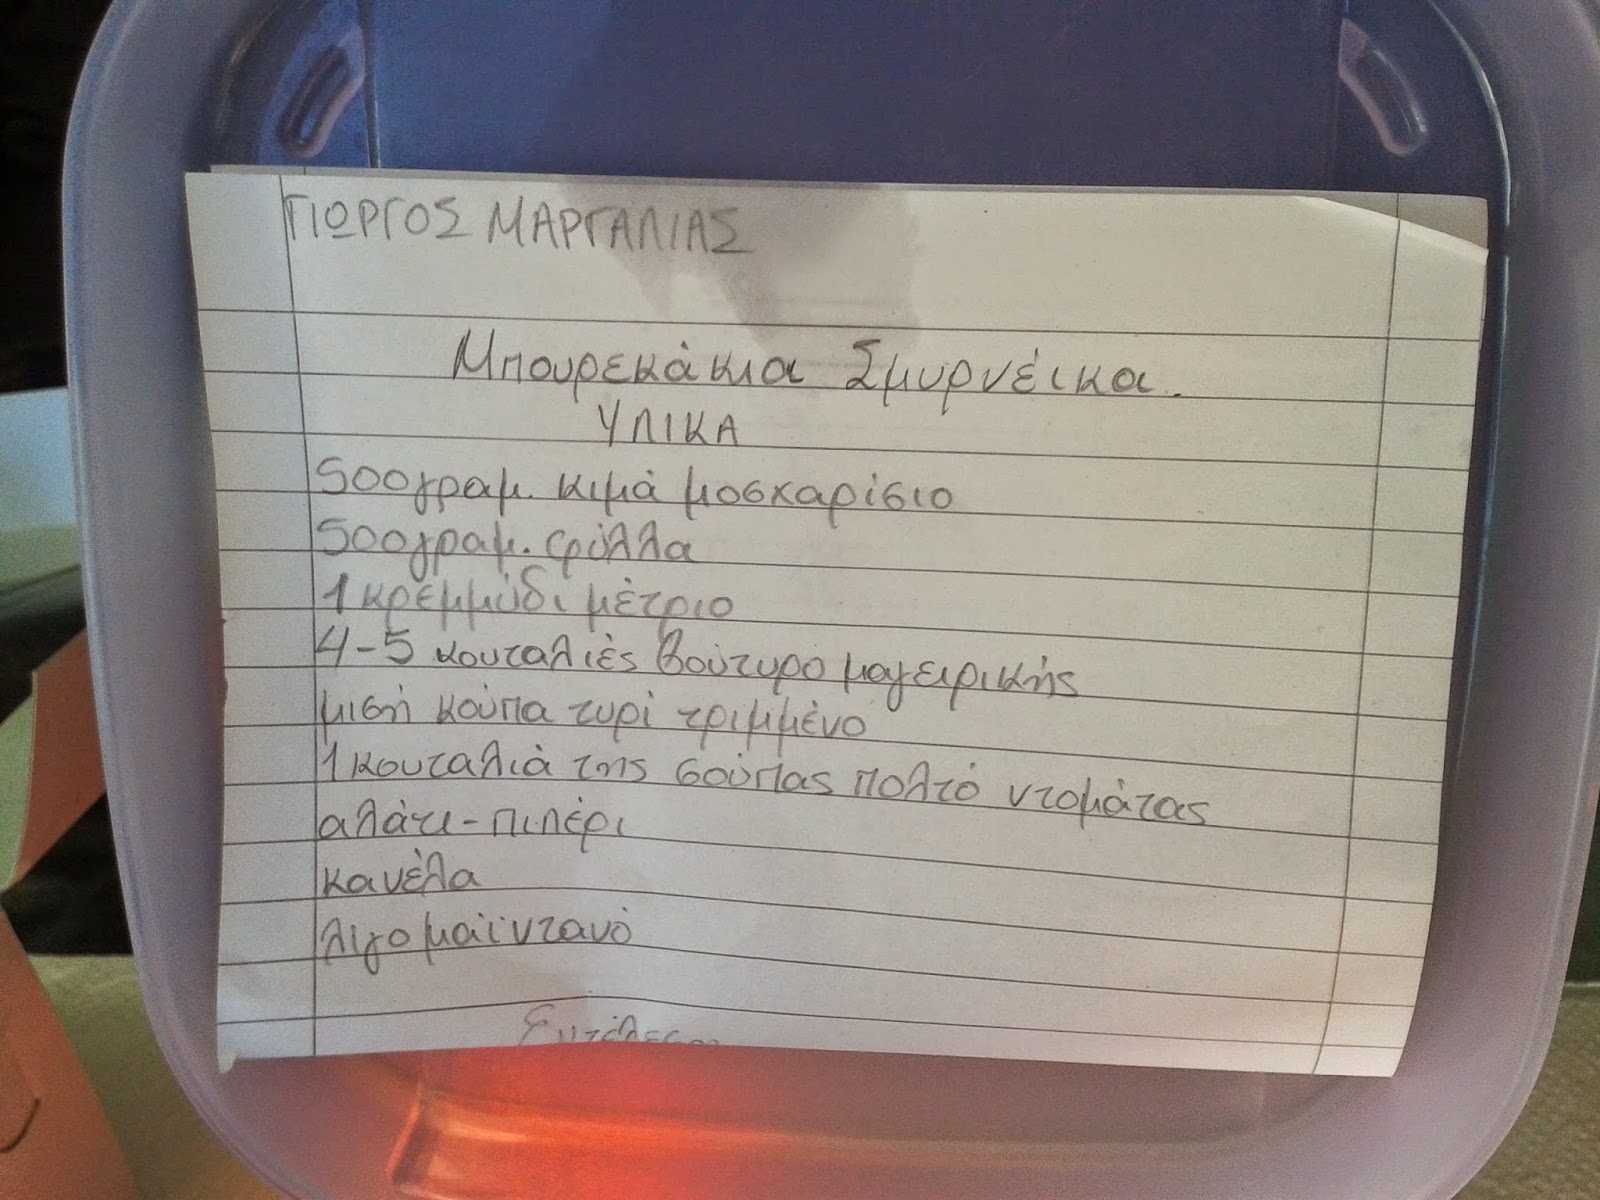 ΓΙΩΡΓΟΣ ΜΑΡΓΑΛΙΑΣ
Μπουρεκάκια Σμυρνέικα.
ΥΛΙΚΑ
500γραμ. κιμά μοσχαρίσιο
500γραμ. φύλλα
1 κρεμμύδι μέτριο
4-5 κουταλιές βούτυρο μαγειρικής
μισή κούπα τυρί τριμμένο
1 κουταλιά της σούπας πολτό ντομάτας
αλάτι-πιπέρι
κανέλα
λίγο μαϊντανό